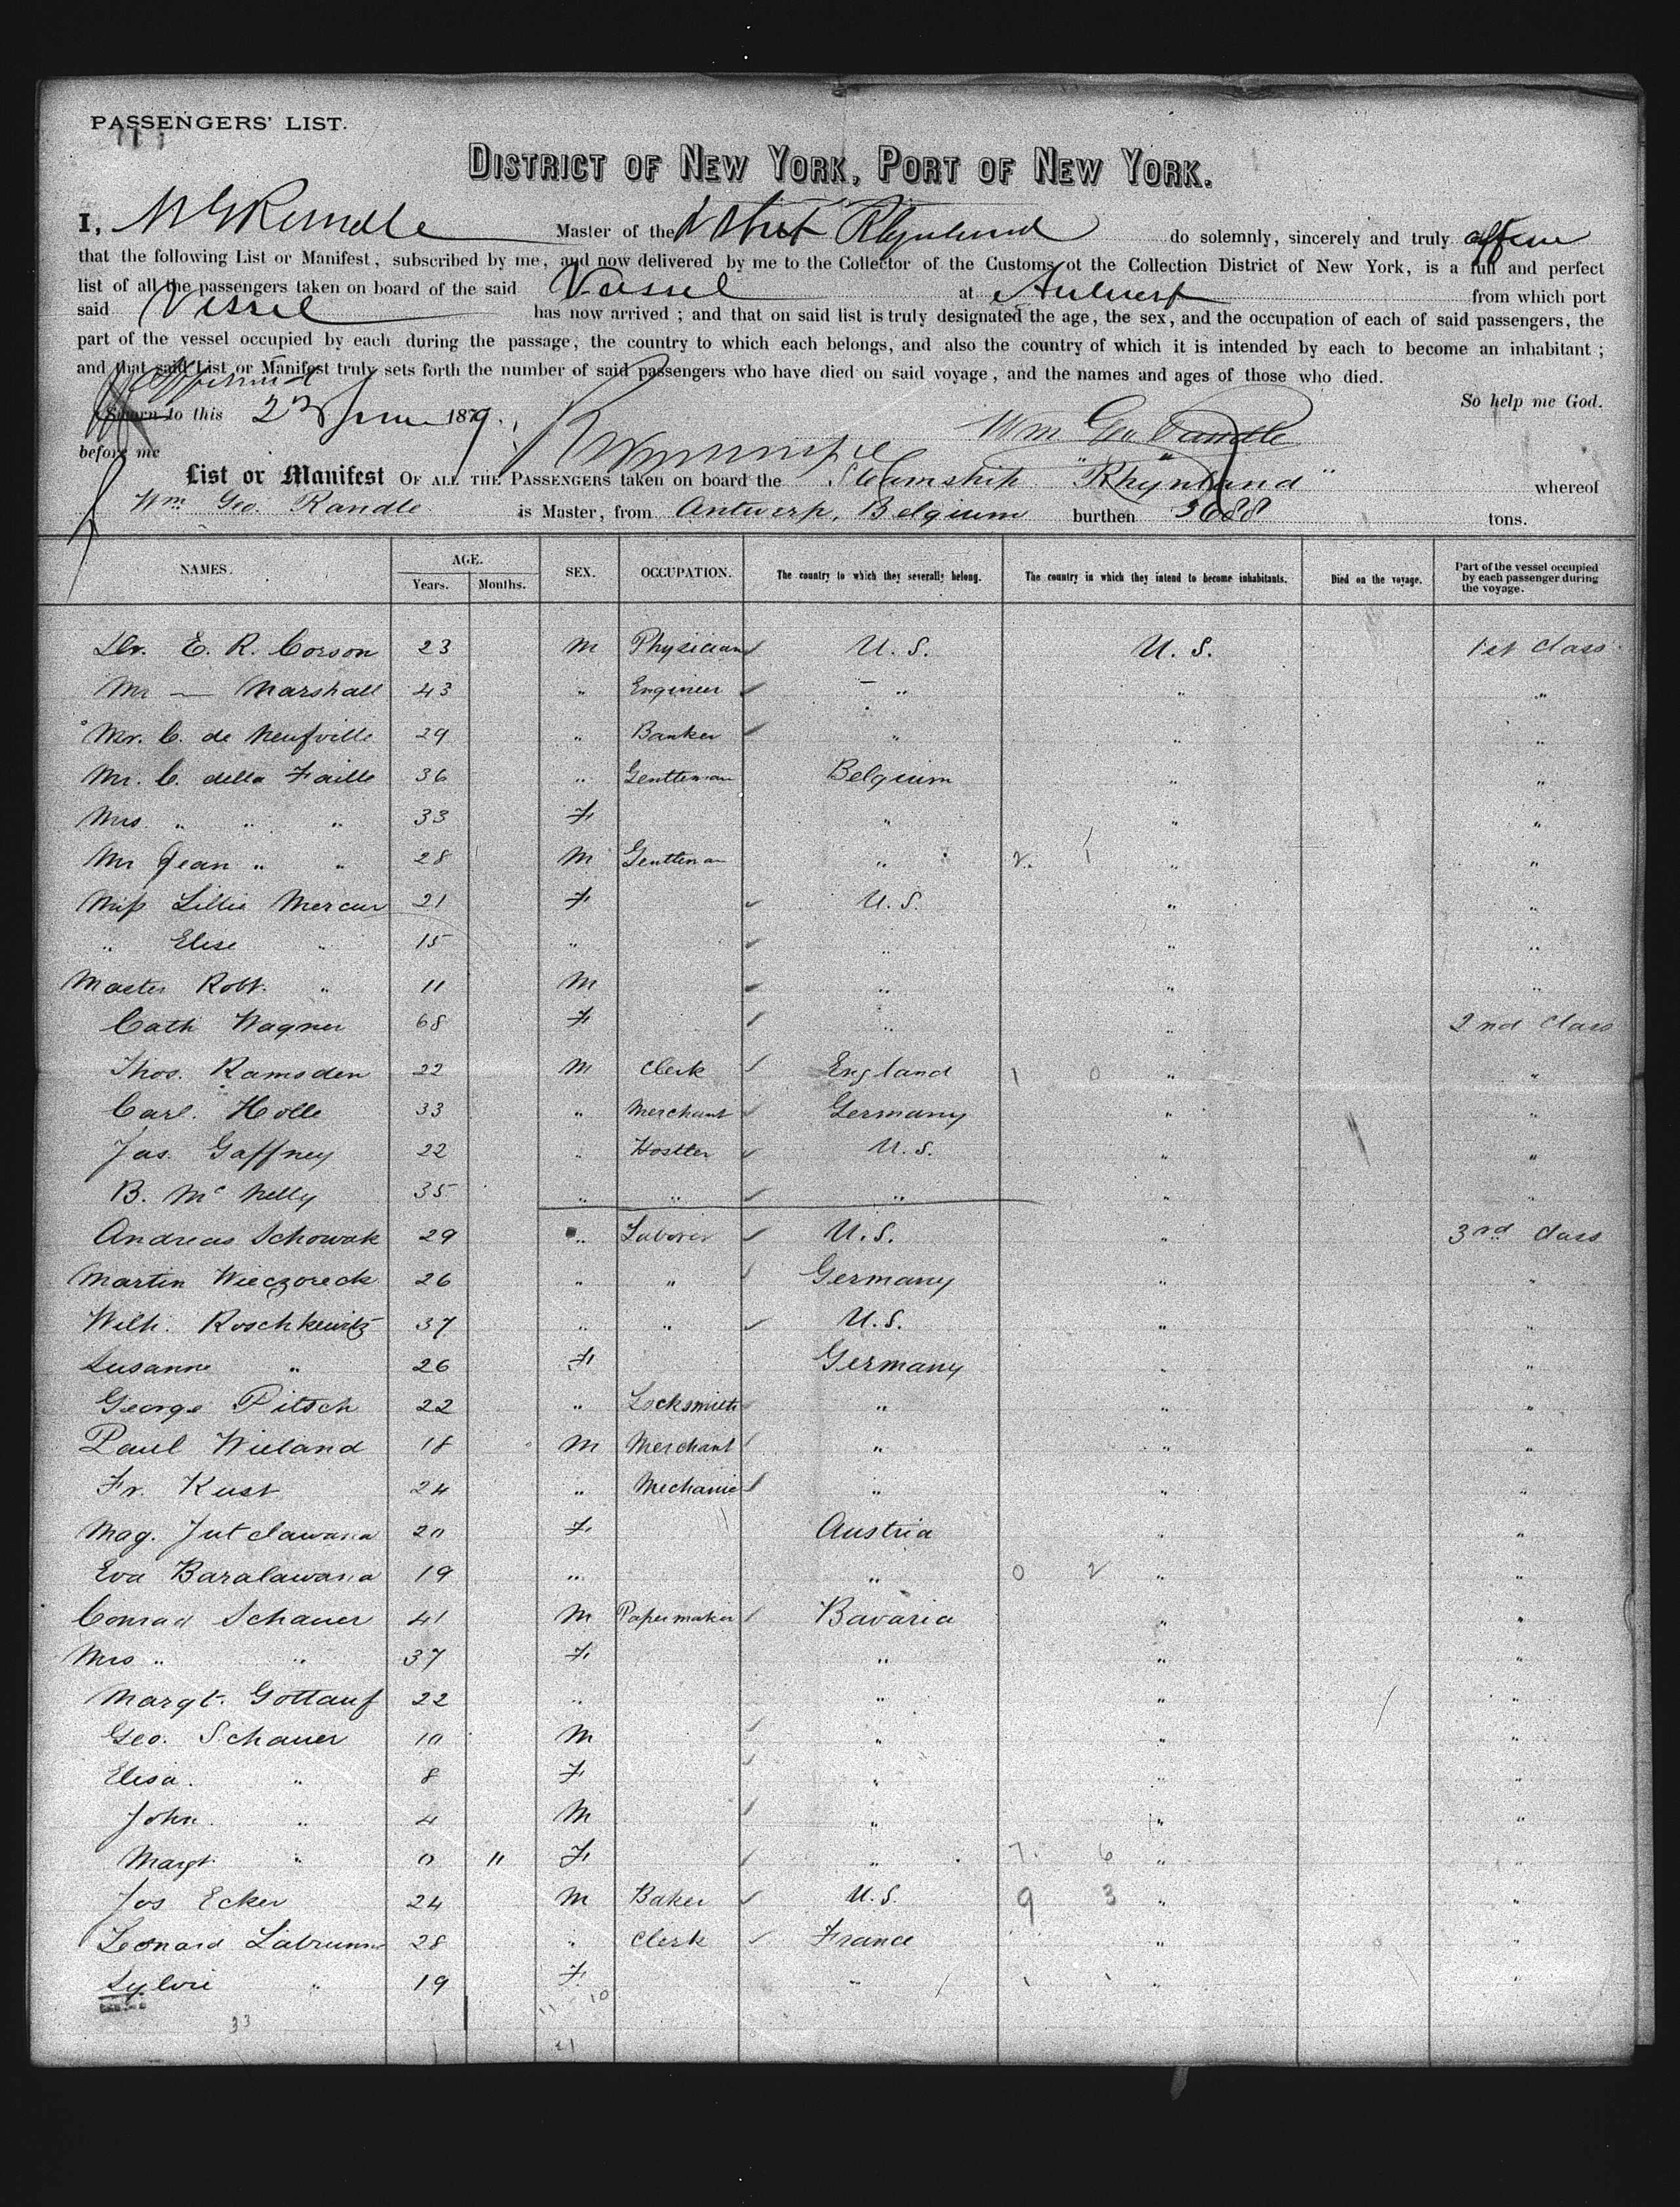 PASSENGERS' LIST.
DISTRICT OF NEW YORK, PORT OF NEW YORK.
I, W G Randle Master of the Rhynland do solemnly, sincerely and truly affirm
that the following List or Manifest, subscribed by me, and now delivered by me to the Collector of the Customs of the Collection District of New York, is a full and perfect
list of all the passengers taken on board of the said Vessel at Antwerp from which port
said Vessel has now arrived; and that on said list is truly designated the age, the sex, and the occupation of each of said passengers, the
part of the vessel occupied by each during the passage, the country to which each belongs, and also the country of which it is intended by each to become an inhabitant;
and that said List or Manifest truly sets forth the number of said passengers who have died on said voyage, and the names and ages of those who died.
So help me God.
Affirmed
Sworn to this 23 June 1879.
Wm Geo Randle
before me
List or Manifest OF ALL THE PASSENGERS taken on board the Steamship "Rhynland" whereof
Wm. Geo. Randle is Master, from Antwerp, Belgium burthen 3688 tons.
NAMES. AGE. SEX. OCCUPATION. The country to which they severally belong. The country in which they intend to become inhabitants. Died on the voyage. Part of the vessel occupied by each passenger during the voyage.
Years. Months.
Dr. E. R. Corson 23 M Physician U.S. U.S. 1st Class
Mr — Marshall 43 " Engineer " " "
Mr. C. de Neufville 29 " Banker " " "
Mr. C. della Faille 36 " Gentleman Belgium " "
Mrs. " " " 33 F " " "
Mr Jean " " 28 M Gentleman " 2. 1 " "
Miss Lillie Mercur 21 F U.S. " "
" Elise " 15 " " " "
Master Robt. " 11 M " " "
Cath Wagner 68 F " " 2nd Class
Thos. Ramsden 22 M Clerk England 1 0 " "
Carl. Holle 33 " Merchant Germany " "
Jas. Gaffney 22 " Hostler U.S. " "
B. McNelly 35 " " " " "
Andreas Schowak 29 " Laborer U.S. " 3rd Class
Martin Wieczoreck 26 " " Germany " "
Wilh. Roschkewitz 37 " " U.S. " "
Susanne " 26 F Germany " "
George Pitsch 22 " Locksmith " " "
Paul Wieland 18 M Merchant " " "
Fr. Kust 24 " Mechanic " " "
Mag. Jutclawana 20 F Austria " "
Eva Baralawana 19 " " 0 2 " "
Conrad Schauer 41 M Papermaker Bavaria " "
Mrs " " 37 F " " "
Margt. Gottauf 22 " " " "
Geo. Schauer 10 M " " "
Elisa. " 8 F " " "
John. " 4 M " " "
Margt. " 0 11 F " 7. 6 " "
Jos Ecker 24 M Baker U.S. 9 3 " "
Leonard Labrunne 28 " Clerk France " "
Sylvie " 19 F " 1 1 " "
11 10
33
21